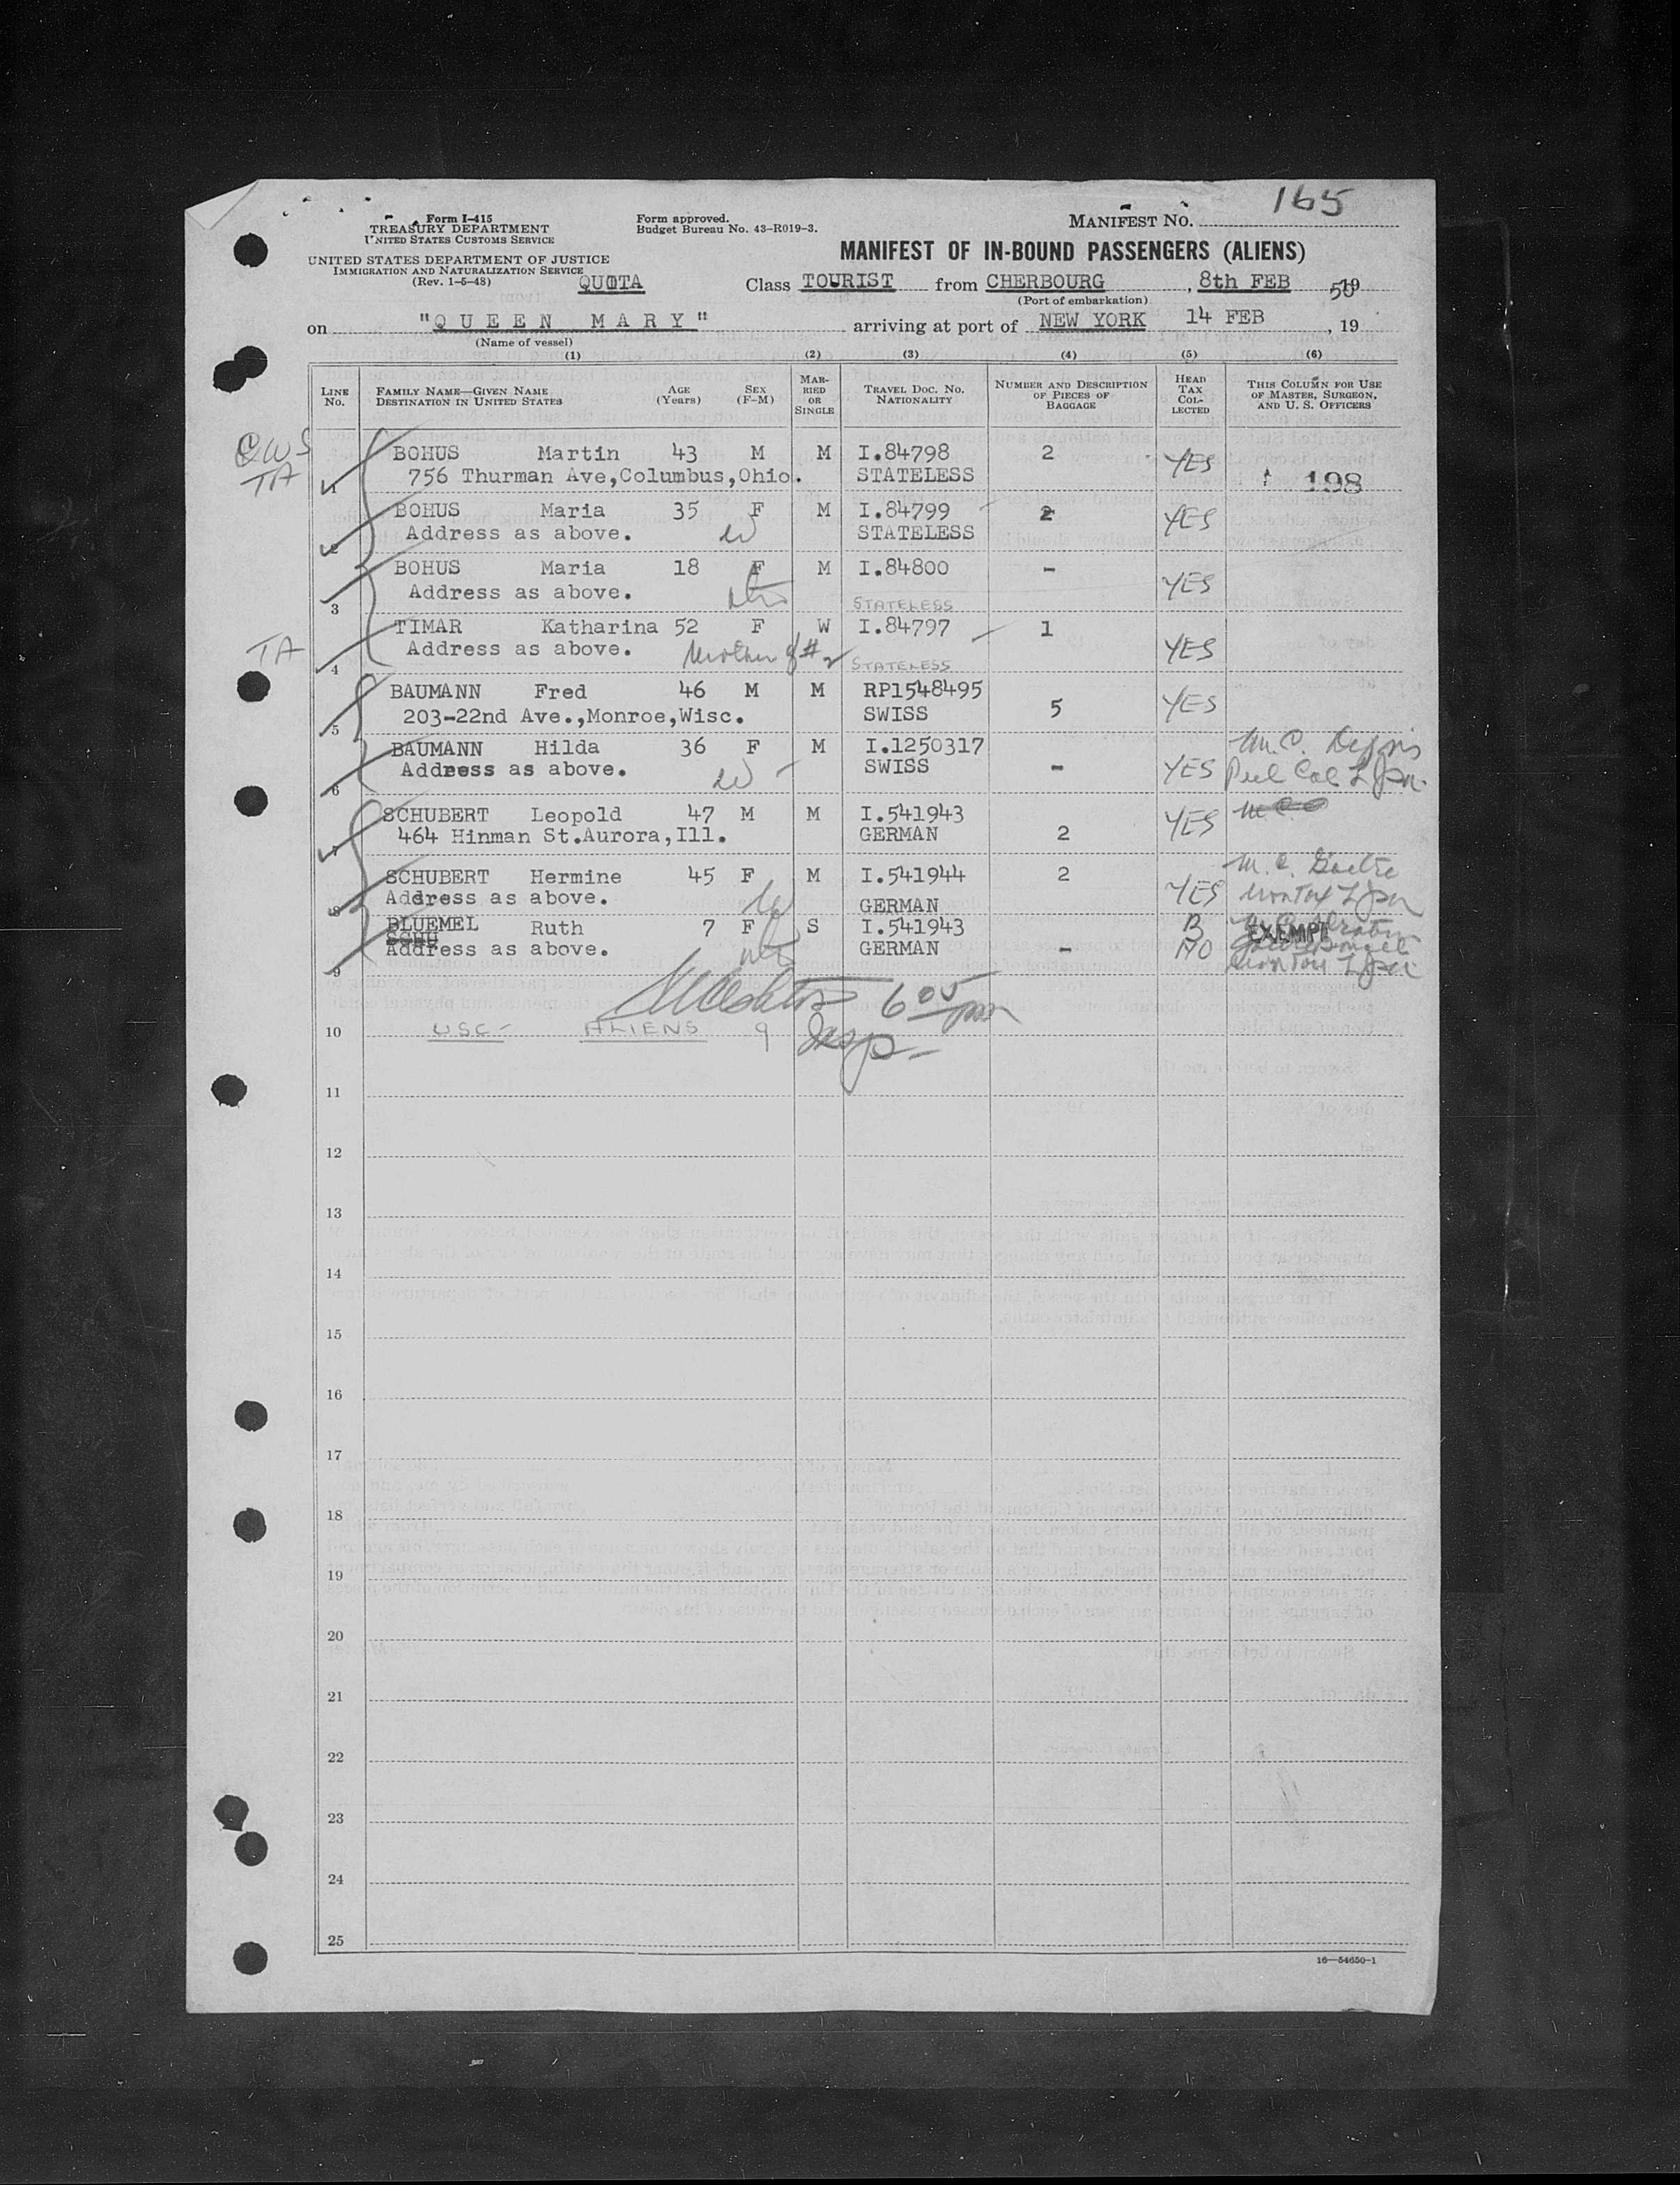 165
Form I-415
TREASURY DEPARTMENT
UNITED STATES CUSTOMS SERVICE
Form approved.
Budget Bureau No. 43-R019-3.
MANIFEST No.
UNITED STATES DEPARTMENT OF JUSTICE
IMMIGRATION AND NATURALIZATION SERVICE
(Rev. 1-5-48)
QUOTA
MANIFEST OF IN-BOUND PASSENGERS (ALIENS)
Class TOURIST from CHERBOURG, 8th FEB 1950
(Port of embarkation)
on "QUEEN MARY" arriving at port of NEW YORK 14 FEB, 19
(Name of vessel)
(1) (2) (3) (4) (5) (6)
LINE No.
FAMILY NAME—GIVEN NAME
DESTINATION IN UNITED STATES
AGE (Years)
SEX (F-M)
MARRIED OR SINGLE
TRAVEL DOC. No. NATIONALITY
NUMBER AND DESCRIPTION OF PIECES OF BAGGAGE
HEAD TAX COLLECTED
THIS COLUMN FOR USE OF MASTER, SURGEON, AND U. S. OFFICERS
CWS
TA
BOHUS Martin 43 M M I.84798 2 YES
1 756 Thurman Ave,Columbus,Ohio. STATELESS 198
BOHUS Maria 35 F M I.84799 2 YES
2 Address as above. W STATELESS
BOHUS Maria 18 F M I.84800 - YES
3 Address as above. STATELESS
TIMAR Katharina 52 F W I.84797 1 YES
TA
4 Address as above. Mother of #2 STATELESS
BAUMANN Fred 46 M M RP1548495 5 YES
5 203-22nd Ave.,Monroe,Wisc. SWISS
BAUMANN Hilda 36 F M I.1250317 - YES
6 Address as above. W SWISS
SCHUBERT Leopold 47 M M I.541943 2 YES
7 464 Hinman St.Aurora,Ill. GERMAN
SCHUBERT Hermine 45 F M I.541944 2 YES
8 Address as above. W GERMAN
BLUEMEL Ruth 7 F S I.541943 NO EXEMPT
SCHU
9 Address as above. GERMAN -
6 05 pm
10 USC- ALIENS 9 Insp-
11
12
13
14
15
16
17
18
19
20
21
22
23
24
25
16—54650-1